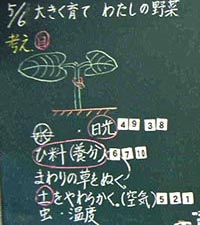 5/6 大きく育て わたしの野菜
考え 目
水 ・ 日光 4 9 3 8
ひ料(養分) 6 7 10
まわりの草をぬく。
土をやわらかく。(空気) 5 2 1
虫・温度